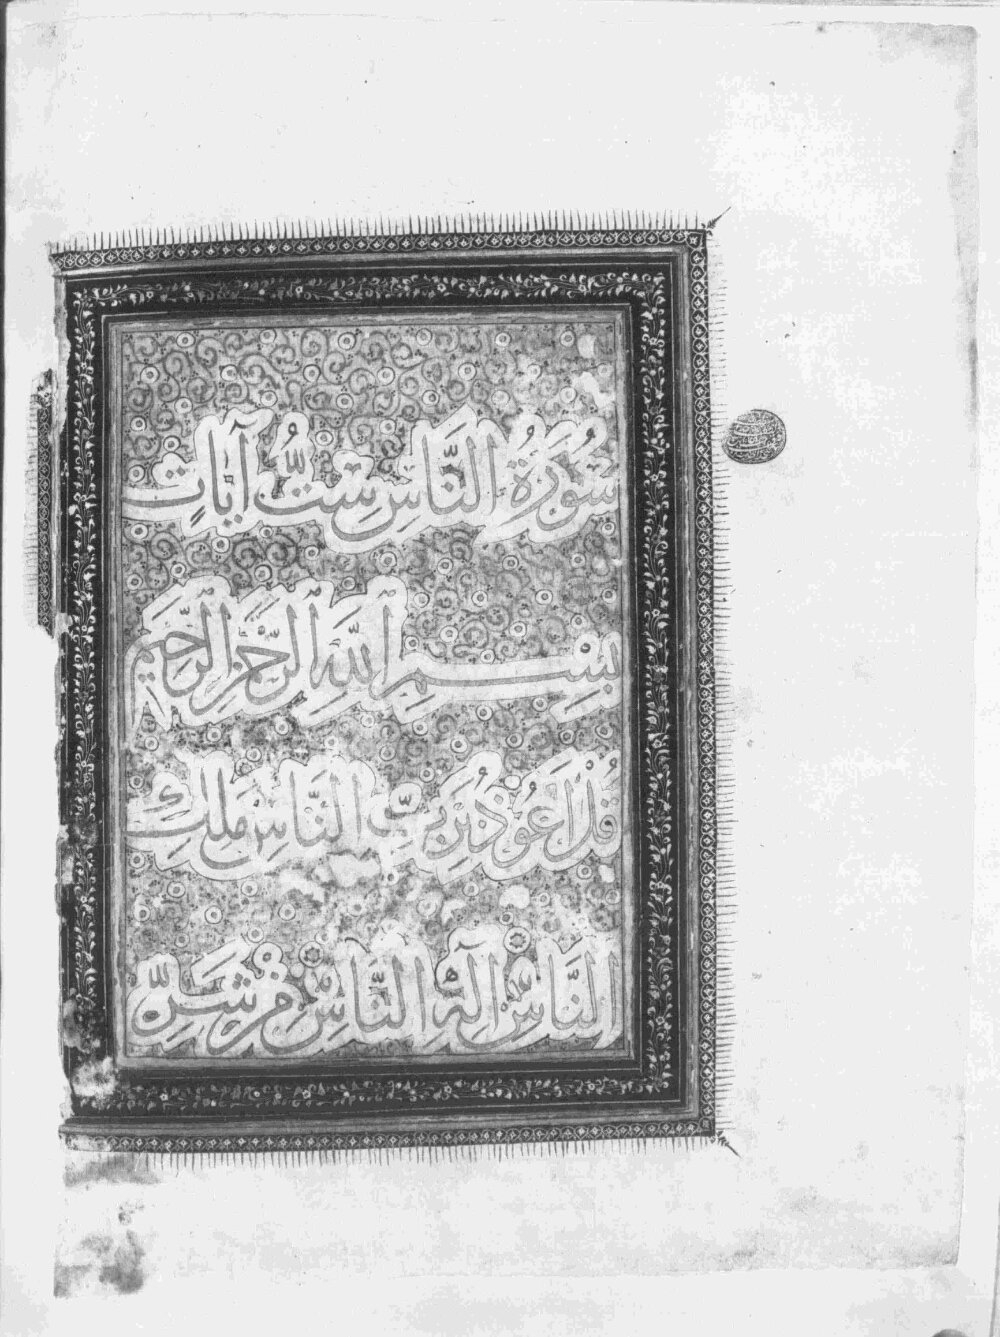 سُورَةُ النَّاسِ سِتُّ آيَاتٍ
بِسْمِ اللَّهِ الرَّحْمَنِ الرَّحِيمِ
قُلْ أَعُوذُ بِرَبِّ النَّاسِ مَلِكِ
النَّاسِ إِلَهِ النَّاسِ مِنْ شَرِّ